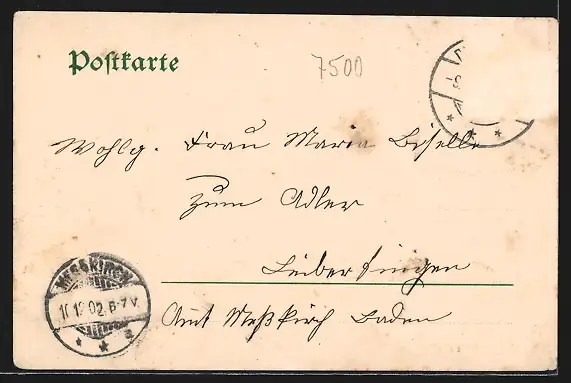 Postkarte
7500
Wohlg. Frau Maria Biselle
zum Adler
Leibertingen
Amt Meßkirch Baden
MESSKIRCH
10.12.02. 6-7 V.